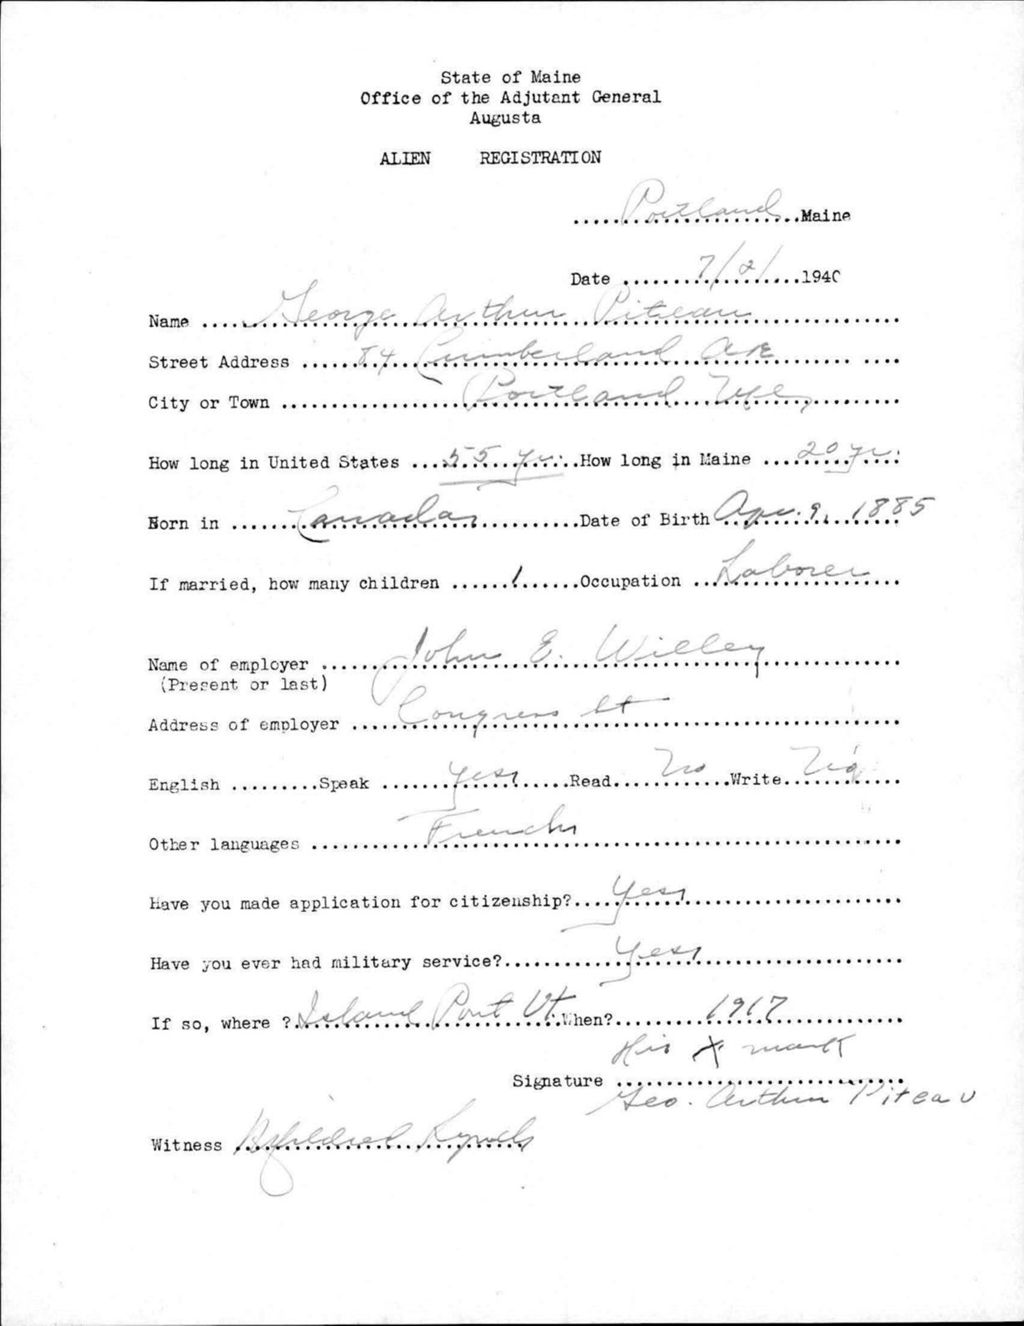 State of Maine
Office of the Adjutant General
Augusta
ALIEN REGISTRATION
.....Portland..Maine
Date ........7/2/.....1940
Name ....George Arthur Piteau...............
Street Address ......84 Cumberland Ave.........
City or Town ..................Portland Me.........
How long in United States ...55 yr...How long in Maine ...20 yr...
Born in .......Canada...........Date of Birth Apr. 9, 1885
If married, how many children ......1......Occupation ..Laborer...
Name of employer ......John E. Willey..............
(Present or last)
Address of employer ....Congress St....................
English .........Speak .......Yes.....Read....No..Write..No....
Other languages ...........French...............................
Have you made application for citizenship?....Yes.....................
Have you ever had military service?...........Yes....................
If so, where ?.Island Pont Vt.When?.........1917............
His X mark
Signature ..............................
Geo. Arthur Piteau
Witness